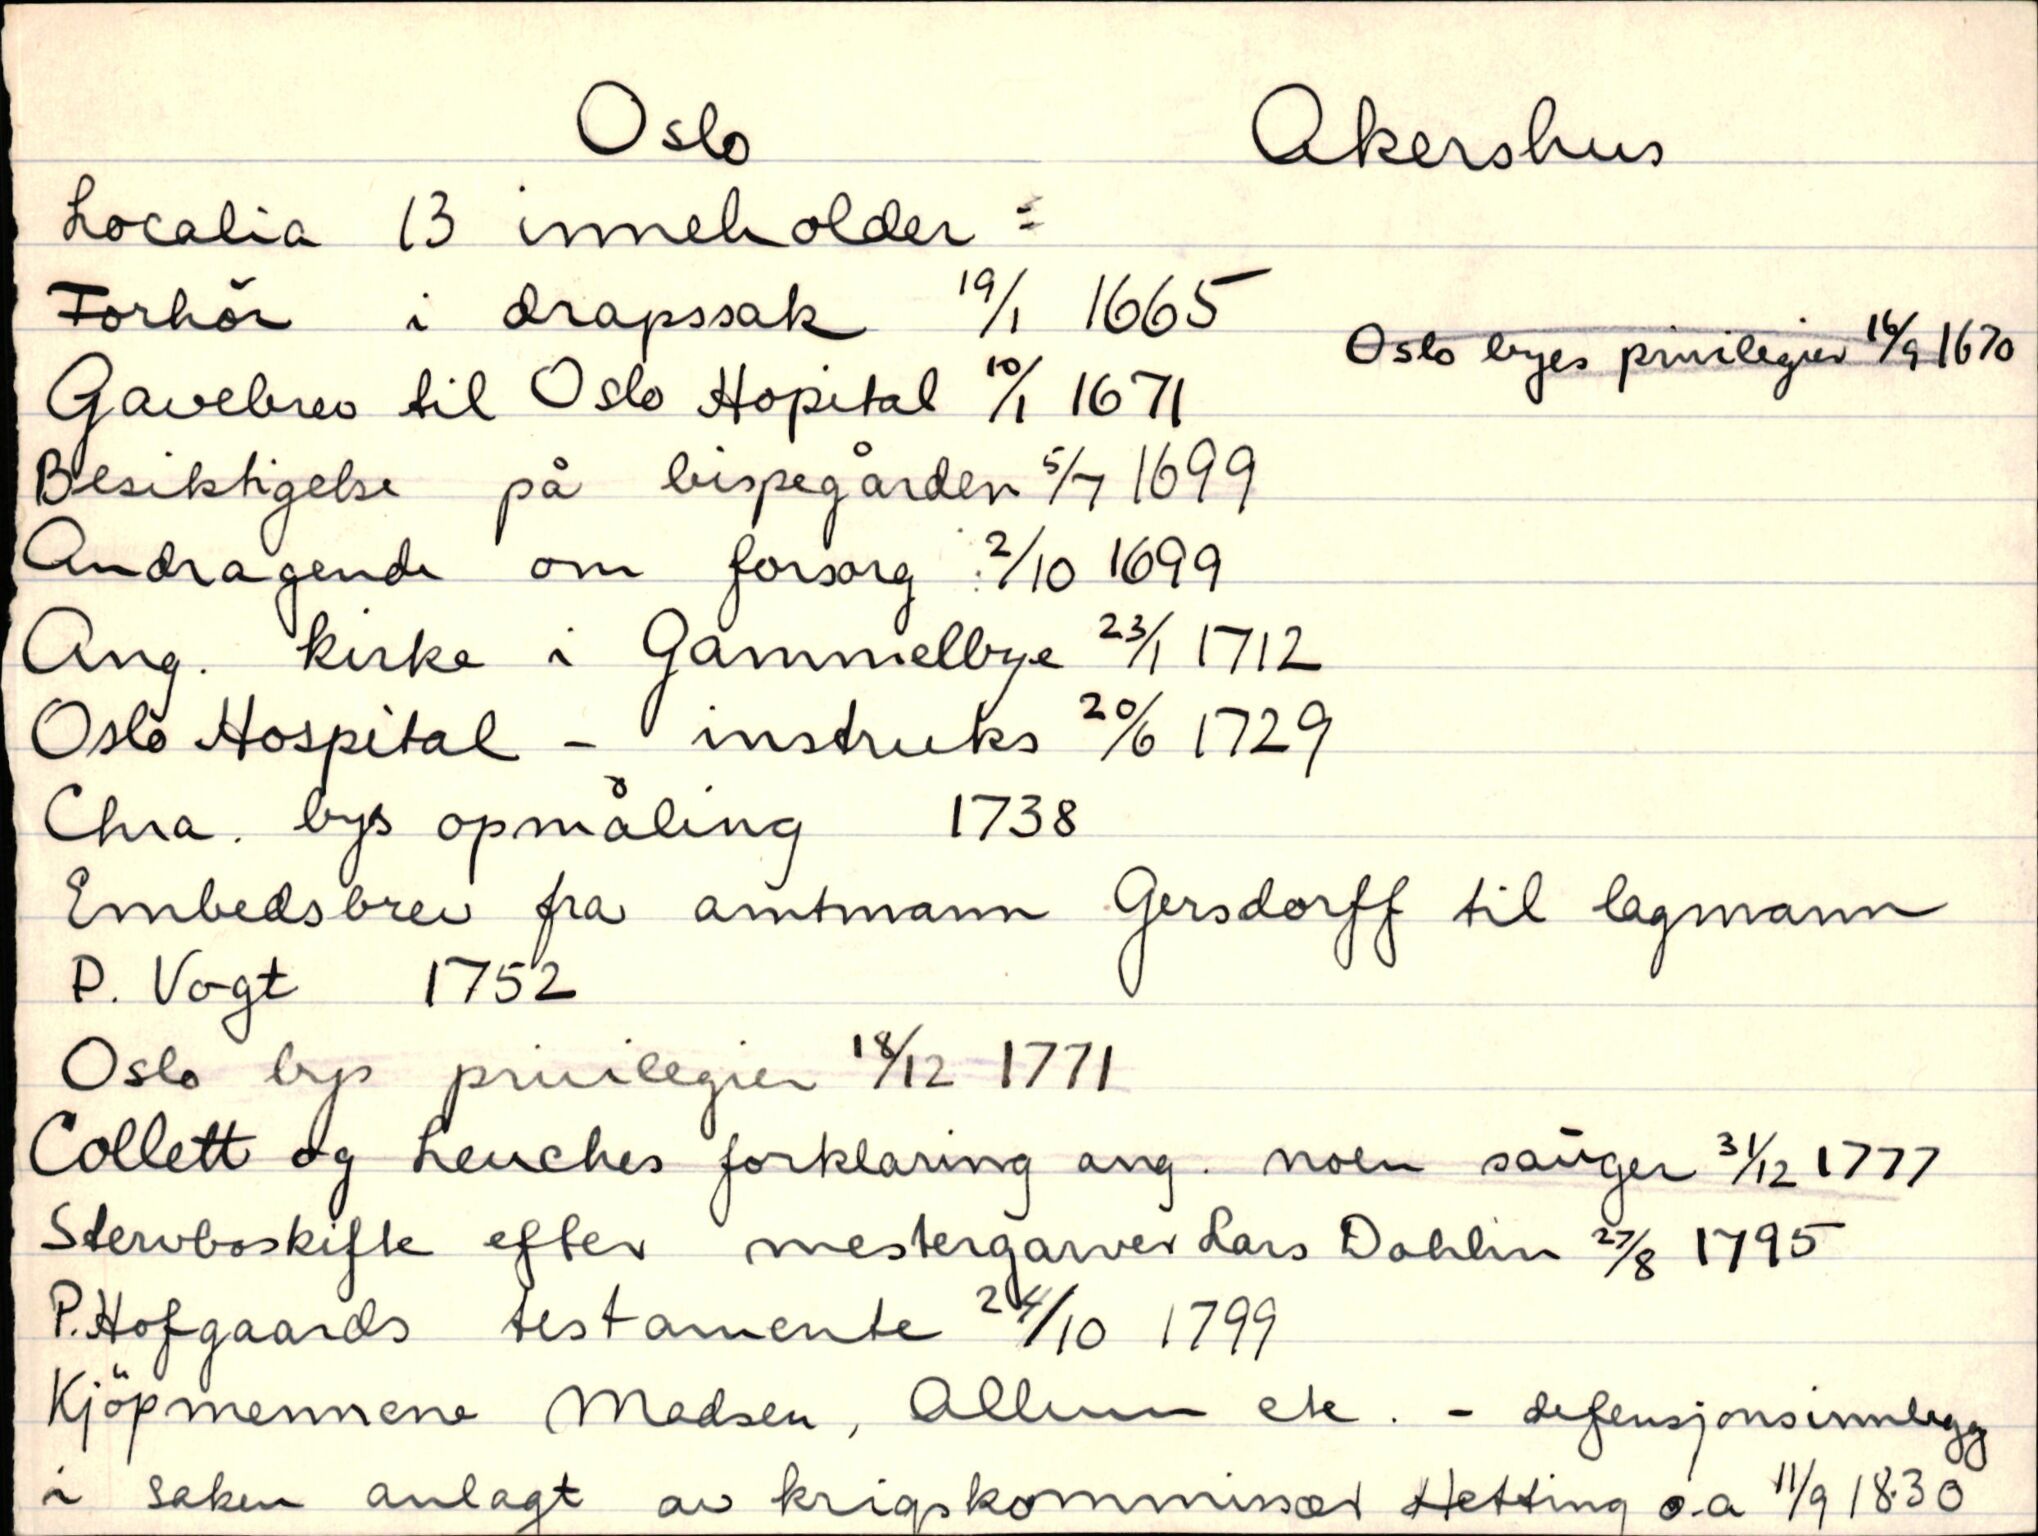 Oslo Akershus
Localia 13 inneholder :
Forhör i drapssak 19/1 1665
Oslo byes privilegier 16/9 1670
Gavebrev til Oslo Hopital 10/1 1671
Besiktigelse på bispegården 5/7 1699
Andragende om forsorg 2/10 1699
Ang. kirke i Gammelbye 23/1 1712
Oslo Hospital - instruks 20/6 1729
Chra. bys opmåling 1738
Embedsbrev fra amtmann Gersdorff til lagmann
P. Vogt 1752
Oslo bys privilegier 18/12 1771
Collett og Leuches forklaring ang. noen sauger 31/12 1777
Stervboskifte efter mestergarver Lars Dahlin 27/8 1795
P. Hofgaards testamente 24/10 1799
Kjöpmennene Madsen, Allum etc. - defensjonsinnlegg
i saken anlagt av krigskommissær Hetting o.a 11/9 1830